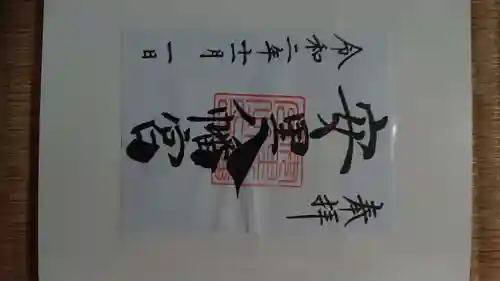 奉拝
安里八幡宮
令和二年十二月一日